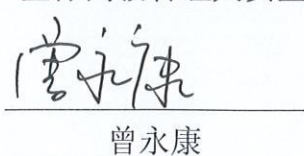 曾永康
曾永康